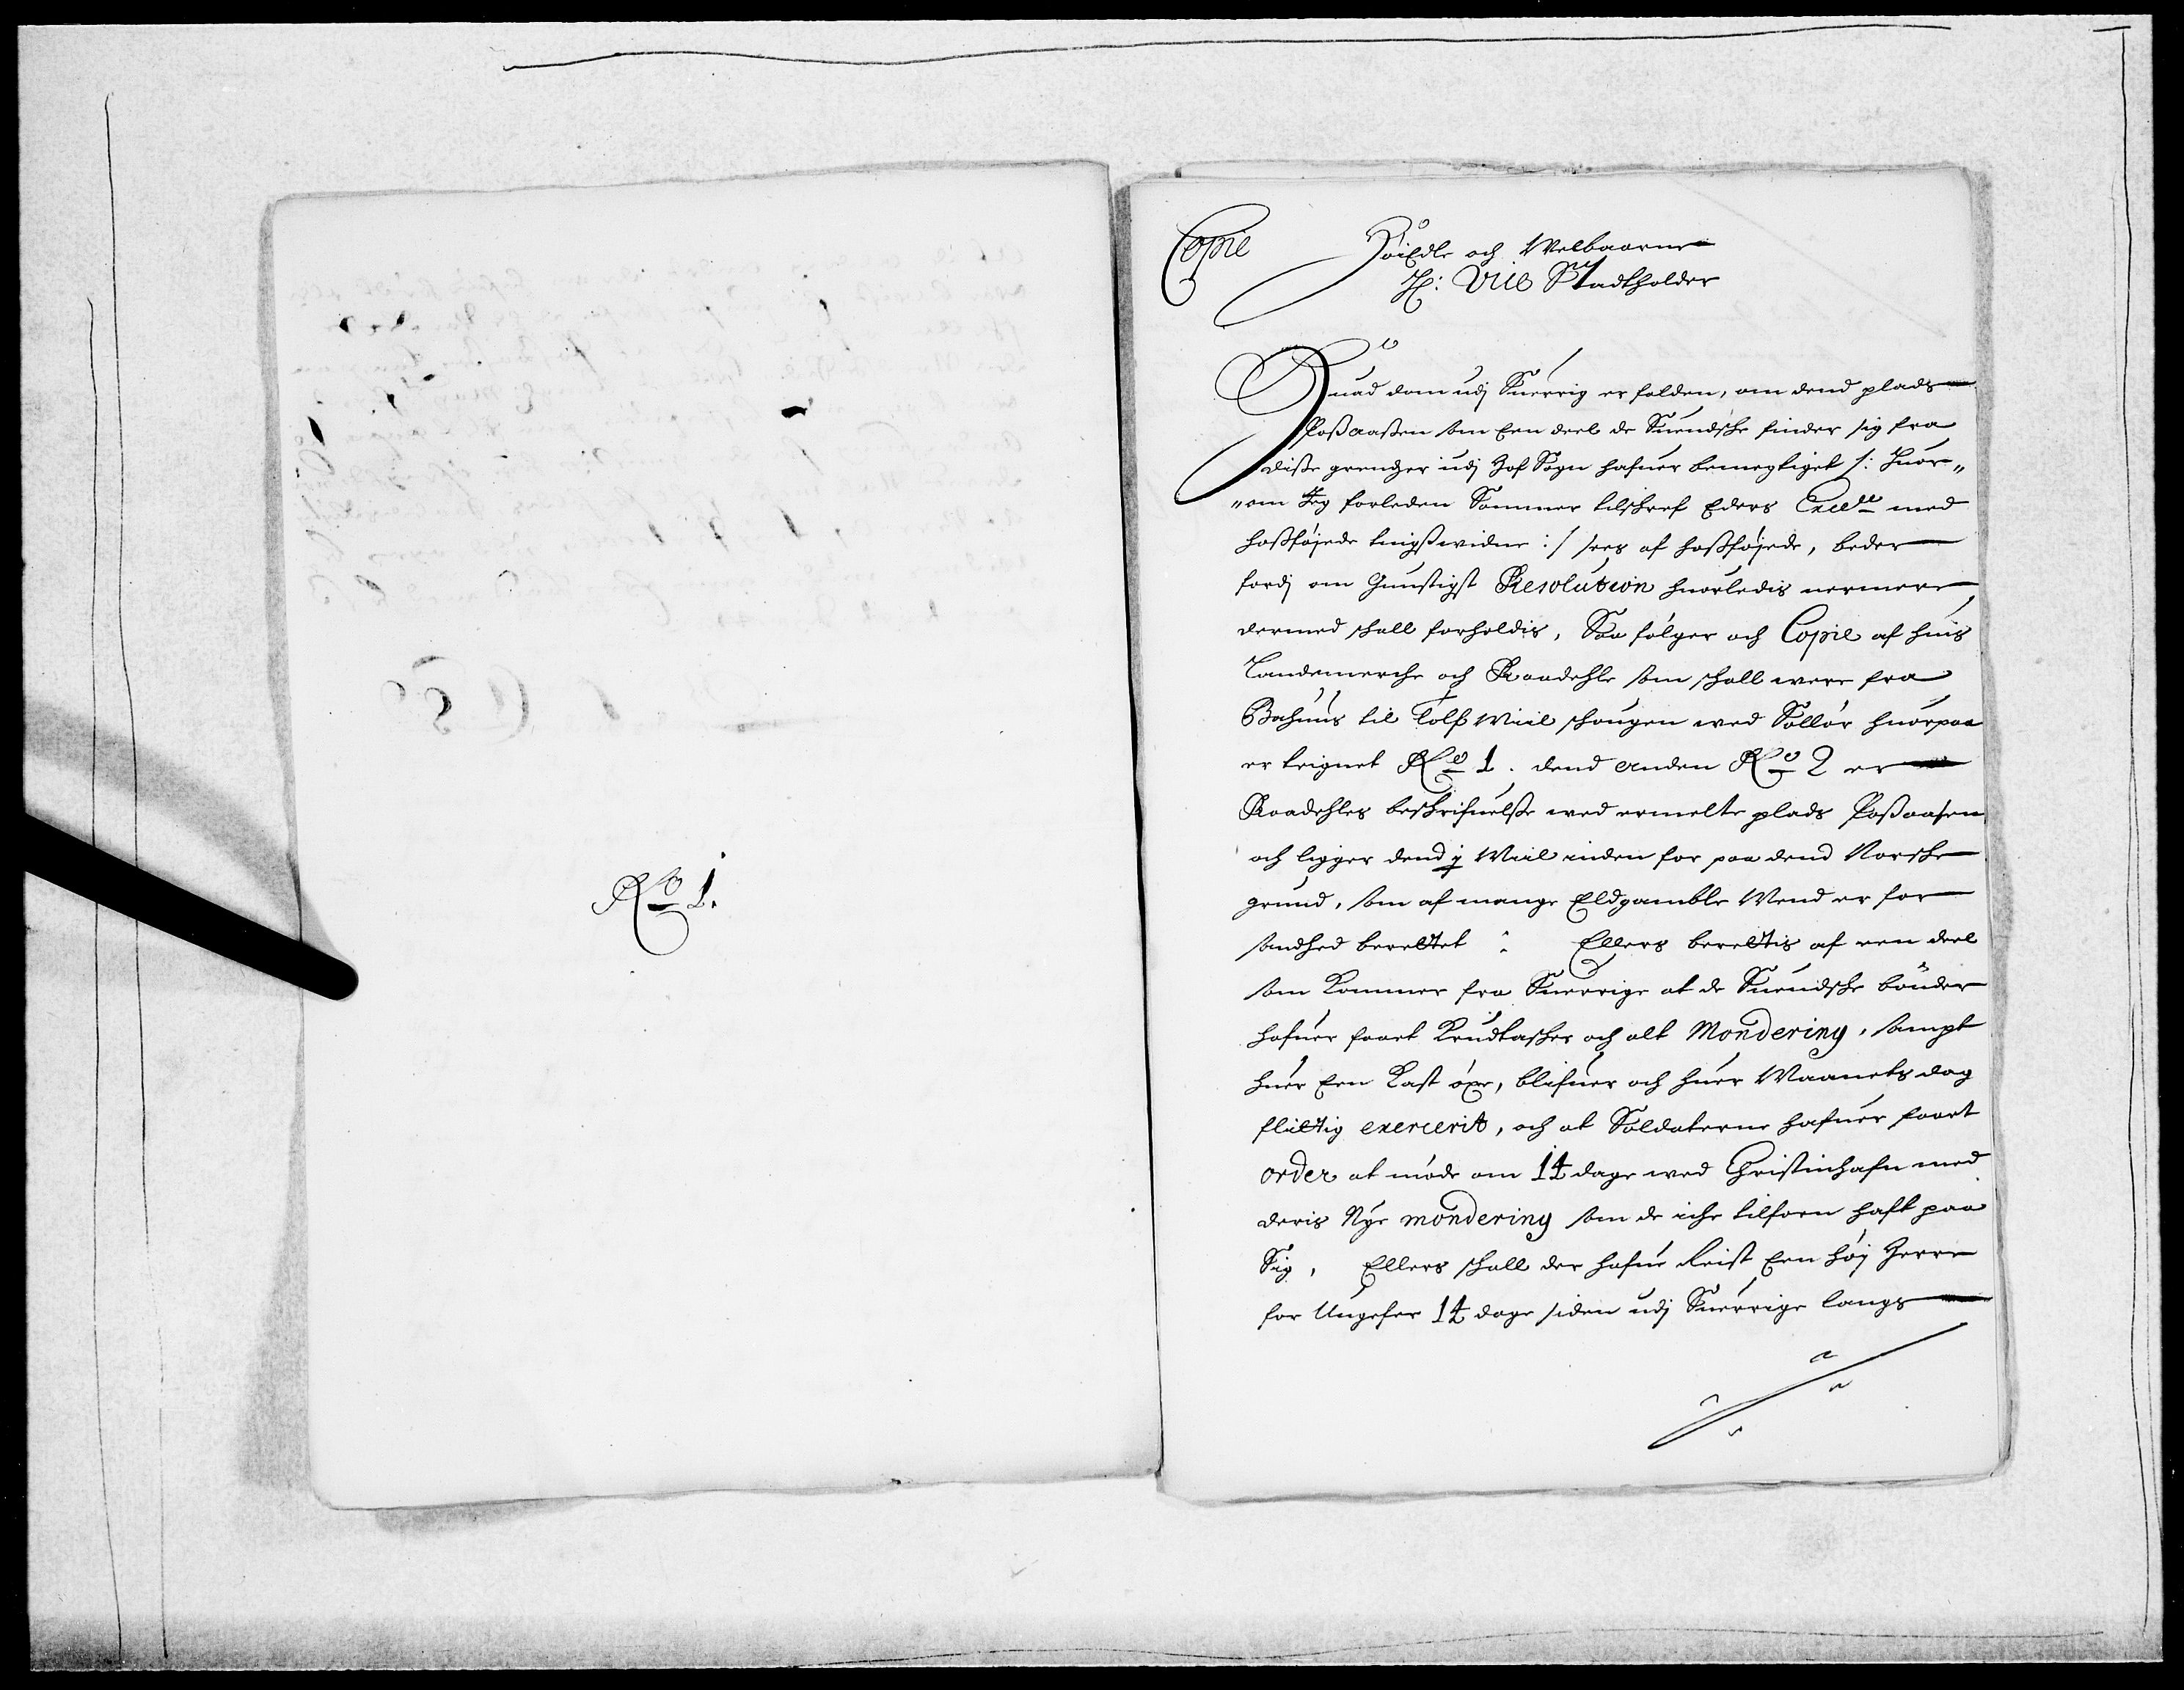 No 1.
Copie
HöiEdle och Welbaarne
H: Vice Stadtholder
Huad dom udj Suerrig er falden, om dend plads
Possaassen som Een deel de Suendshe finder sig fra
disse grendzer udj Hof Sogn hafuer bemegtiget /: Huor„
„om Jeg forleden Sommer tilschref Eders Excell: med
hossföjede tingswidne :/ sees af hossföjede, beder
fordj om Gunstigst Resolution huorledis nermere
dermed shall forholdis, Saa fölger och Copie af huis
Landemerche och Raadehle som shall were fra
Bahuus til Tolf Miil shougen ved Sollör huorpaa
er teignet No 1. dend anden No 2 er
Raadehles beskrifuelsse ved ermelte plads Possaasen
och ligger dend ½ Miil inden for paa dend Norshe
grund, som af mange Eldgamble Mend er for
sandhed berettet : Ellers berettis af een deel
som Kommer fra Suerrige at de Suendshe bönder
hafuer faaet Krudtasher och alt Mondering, sampt
huer Een Kast öxe, blifuer och huer Maanets dag
flittig exercerit, och at Soldaterne hafuer faaet
order at möde om 14 dage ved Christinhafn med
deris Nye mondering som de iche tilforn haft paa
Sig, Ellers shall der hafue Reist Een höj Herre
for Ungefer 14 dage siden udj Suerrige langs